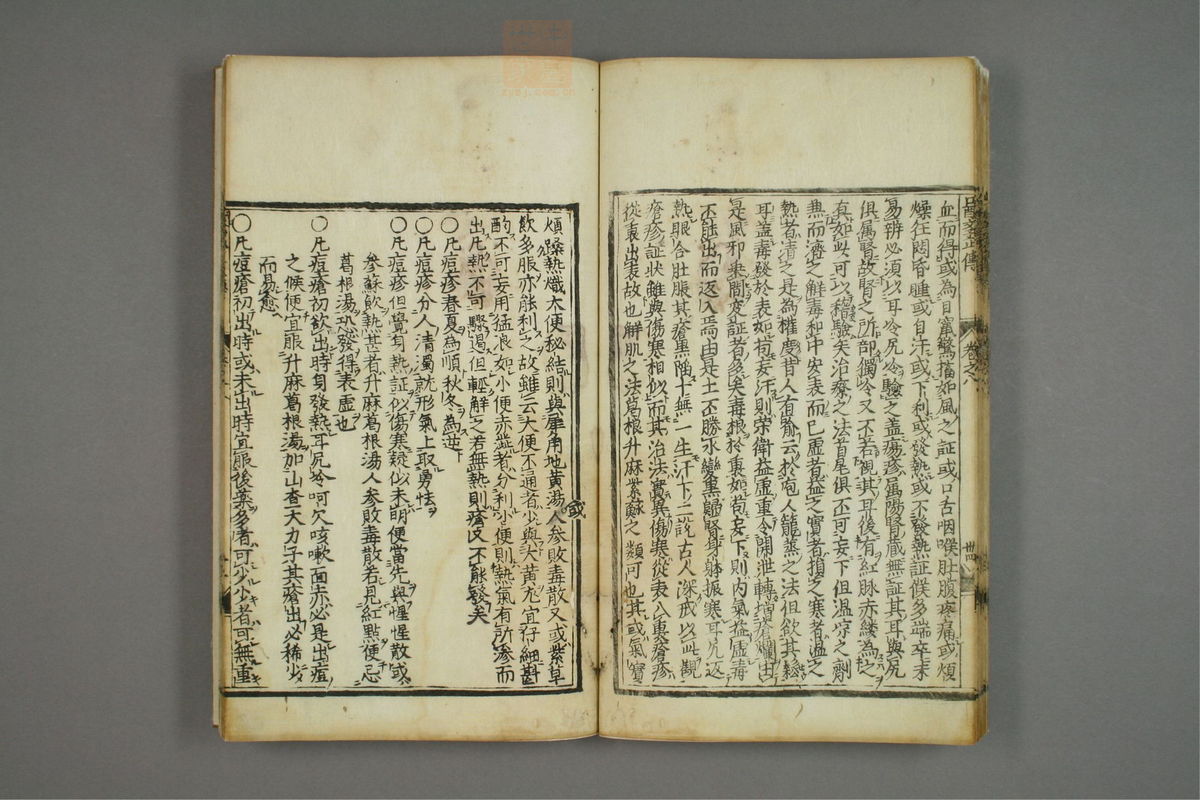 醫學正傳 卷之八 卌
血而得或為目竄驚搐如風之証或口舌咽喉肚腹疼痛或煩
燥狂悶昏瞳或自汗或下利或發熱或不發熱証候多端卒未
易辨必須以耳冷尻冷驗之蓋瘍疹属陽腎藏無証其耳與尻
俱属腎故腎之所部獨冷又不若視其耳後有紅脉赤縷為之
真如此可以稽驗矣治療之法首尾俱不可妄下但温凉之劑
兼而濟之觧毒和中安表而已虚者益之實者損之寒者温之
熱者清之是為權度昔人有喻云於庖人籠蒸之法但欲其鬆
耳蓋毒發於表如苟妄汗則荣衛益虚重令開泄轉増瘡爛由
是風邪乗間變証者多矣毒根於裏如苟妄下則内氣益虚毒
不能出而返入焉由是土不勝水變黒歸腎身躰振寒耳尻返
熱眼合肚脹其瘡黒陷十無一生汗下二説古人深戒以此觀
瘡疹証状雖與傷寒相似而其治法實異傷寒從表入裏瘡疹
從裏出表故也觧肌之法葛根升麻紫蘇之類可也其或氣實
煩躁熱熾大便秘結則與犀角地黄湯人参敗毒散又或紫草
飲多服亦能利之故雖云大便不通者少與大黄尤宜仔細斟
酌不可妄用猛浪如小便赤澁者分利小便則熱氣有所滲而
出凡熱不可驟遏但輕觧之若無熱則瘡又不能發矣
〇凡痘疹春夏為順秋冬為逆
〇凡痘疹分人清濁就形氣上取勇怯
〇凡痘疹但覺身熱証似傷寒疑似未明便當先與惺惺散或
参蘇飲熱甚者升麻葛根湯人参敗毒散若見紅點便忌
葛根湯恐發得表虚也
〇凡痘瘡初欲出時身發熱耳尻冷呵欠咳嗽面赤必是出痘
之候便宜服升麻葛根湯加山查大力子其瘡出必稀少
而易愈
〇凡痘瘡初出時或未出時宜服後藥多者可少少者可無重
或